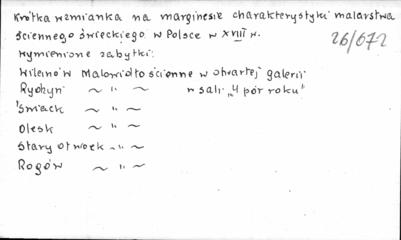 Krótka wzmianka na marginesie charakterystyki malarstwa
ściennego świeckiego w Polsce w XVIII w.
26/672
wymienione zabytki:
Wilanów Malowidło ścienne w otwartej galerii
Rydzyn ~ " ~ w sali „4 pór roku"
Śmiack ~ " ~
Olesk ~ " ~
Stary Otwock ~ " ~
Rogów ~ " ~